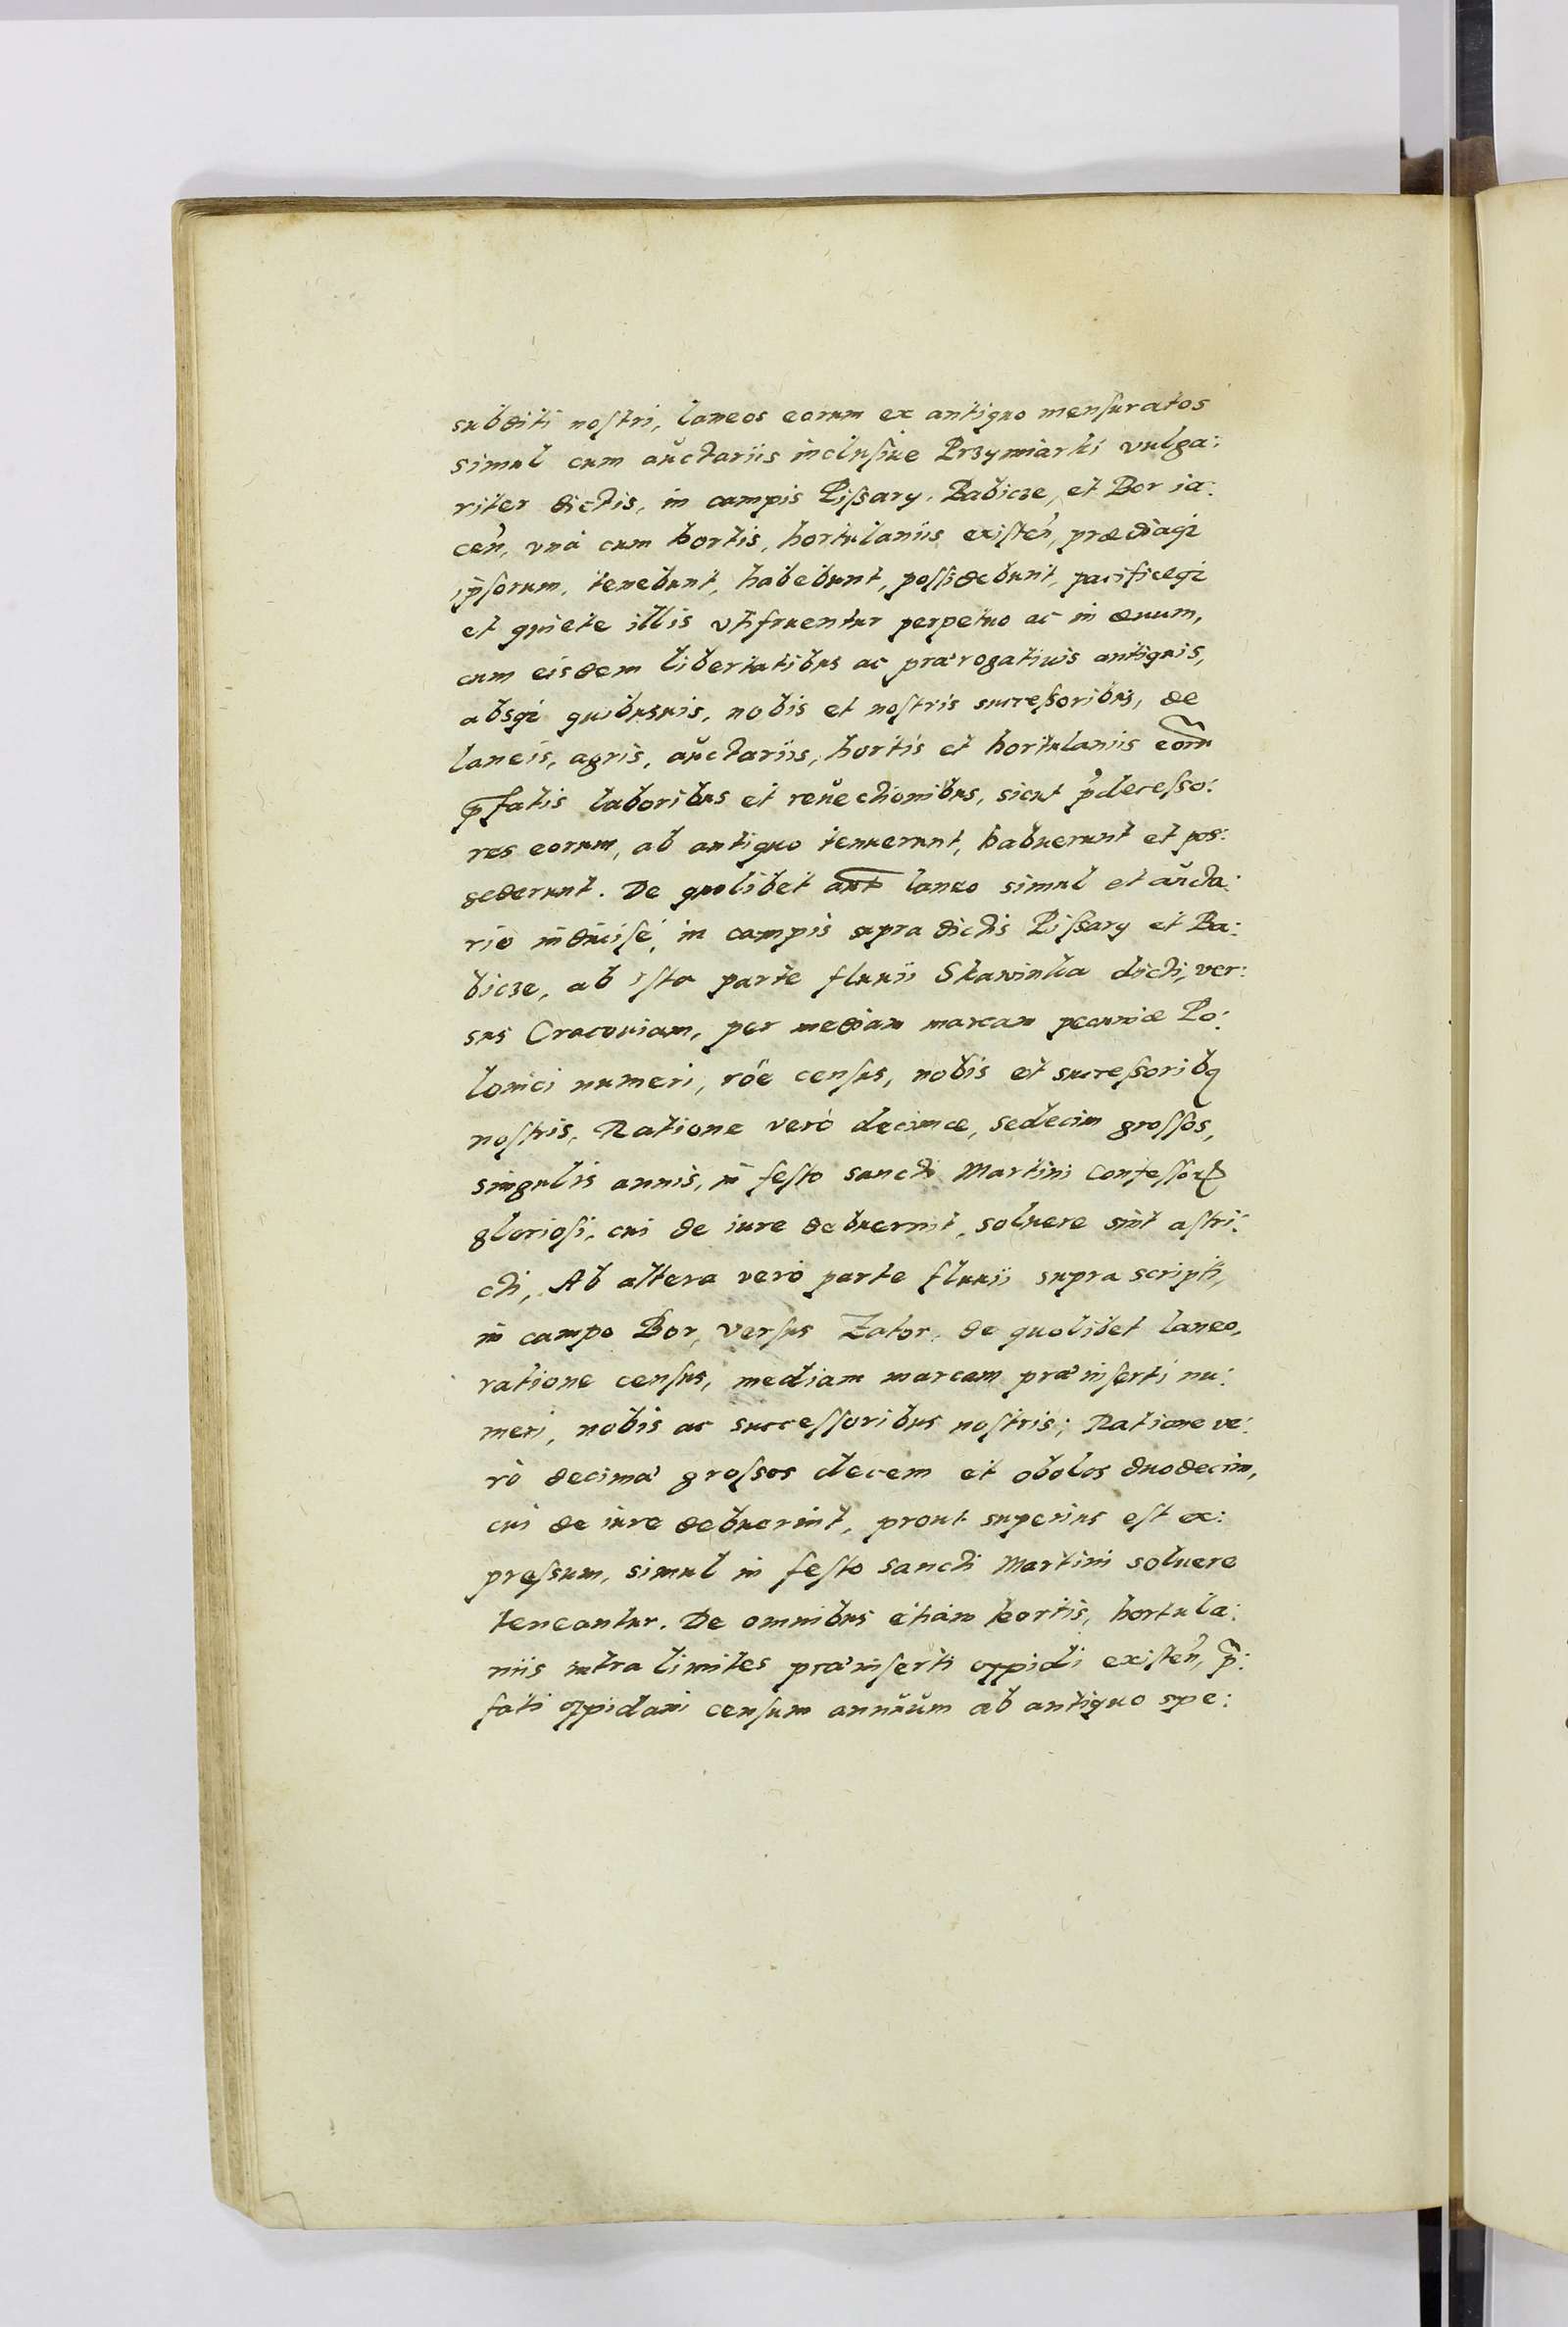 subditi nostri, laneos eorum ex antiquo mensuratos
simul cum auctariis inclusiue Przymiarki vulga:
riter dictis, in campis Pissary, Babicze, et Bor ia:
ceñ, vnà cum hortis, hortulaniis existeñ, prædiaq;
ipsorum, tenebunt, habebunt, possidebunt, pacificeq;
et quiete illis vtifruentur perpetuo ac in æuum,
cum eisdem libertatibus ac prærogatiuis antiquis,
absq; quibusuis, nobis et nostris successoribus, de
laneis, agris, auctariis, hortis et hortulaniis eorũ
p̃fatis laboribus et reuectionibus, sicut p̃decesso:
res eorum, ab antiquo tenuerunt, habuerunt et pos:
sederunt. De quolibet aut̃ laneo simul et aucta:
rio indiuise, in campis supra dictis Pissary et Ba:
bicze, ab ista parte fluuii Skawinka dicti, ver:
sus Cracouiam, per mediam marcam pecuniæ Po:
lonici numeri, rõe census, nobis et successoribq
nostris, Ratione verò decimæ, sedecim grossos,
singulis annis, in festo sancti Martini Confessoris
gloriosi, cui de iure debuerint, soluere sint astri:
cti, Ab altera verò parte fluuii supra scripti,
in campo Bor, versus Zator, de quolibet laneo,
ratione census, mediam marcam præinserti nu:
meri, nobis ac successoribus nostris; Ratione ve:
rò decimæ grossos decem et obolos duodecim,
cui de iure debuerint, prout superius est ex:
pressum, simul in festo sancti Martini soluere
teneantur. De omnibus etiam hortis, hortula:
niis intra limites præinserti oppidi existeñ, p̃:
fati oppidani censum annuum ab antiquo spe: